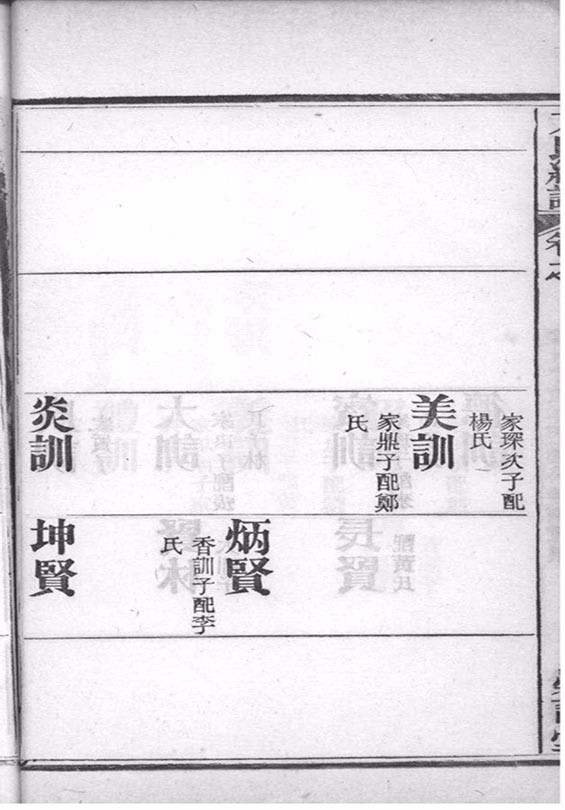 家琛次子配
楊氏
美訓
家鼎子配鄭
氏
炎訓
炳賢
香訓子配李
氏
坤賢